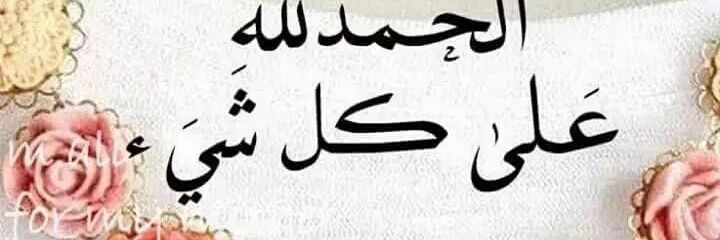 الحمدلله
عَلىٰ كل شَيَء
m all
for my